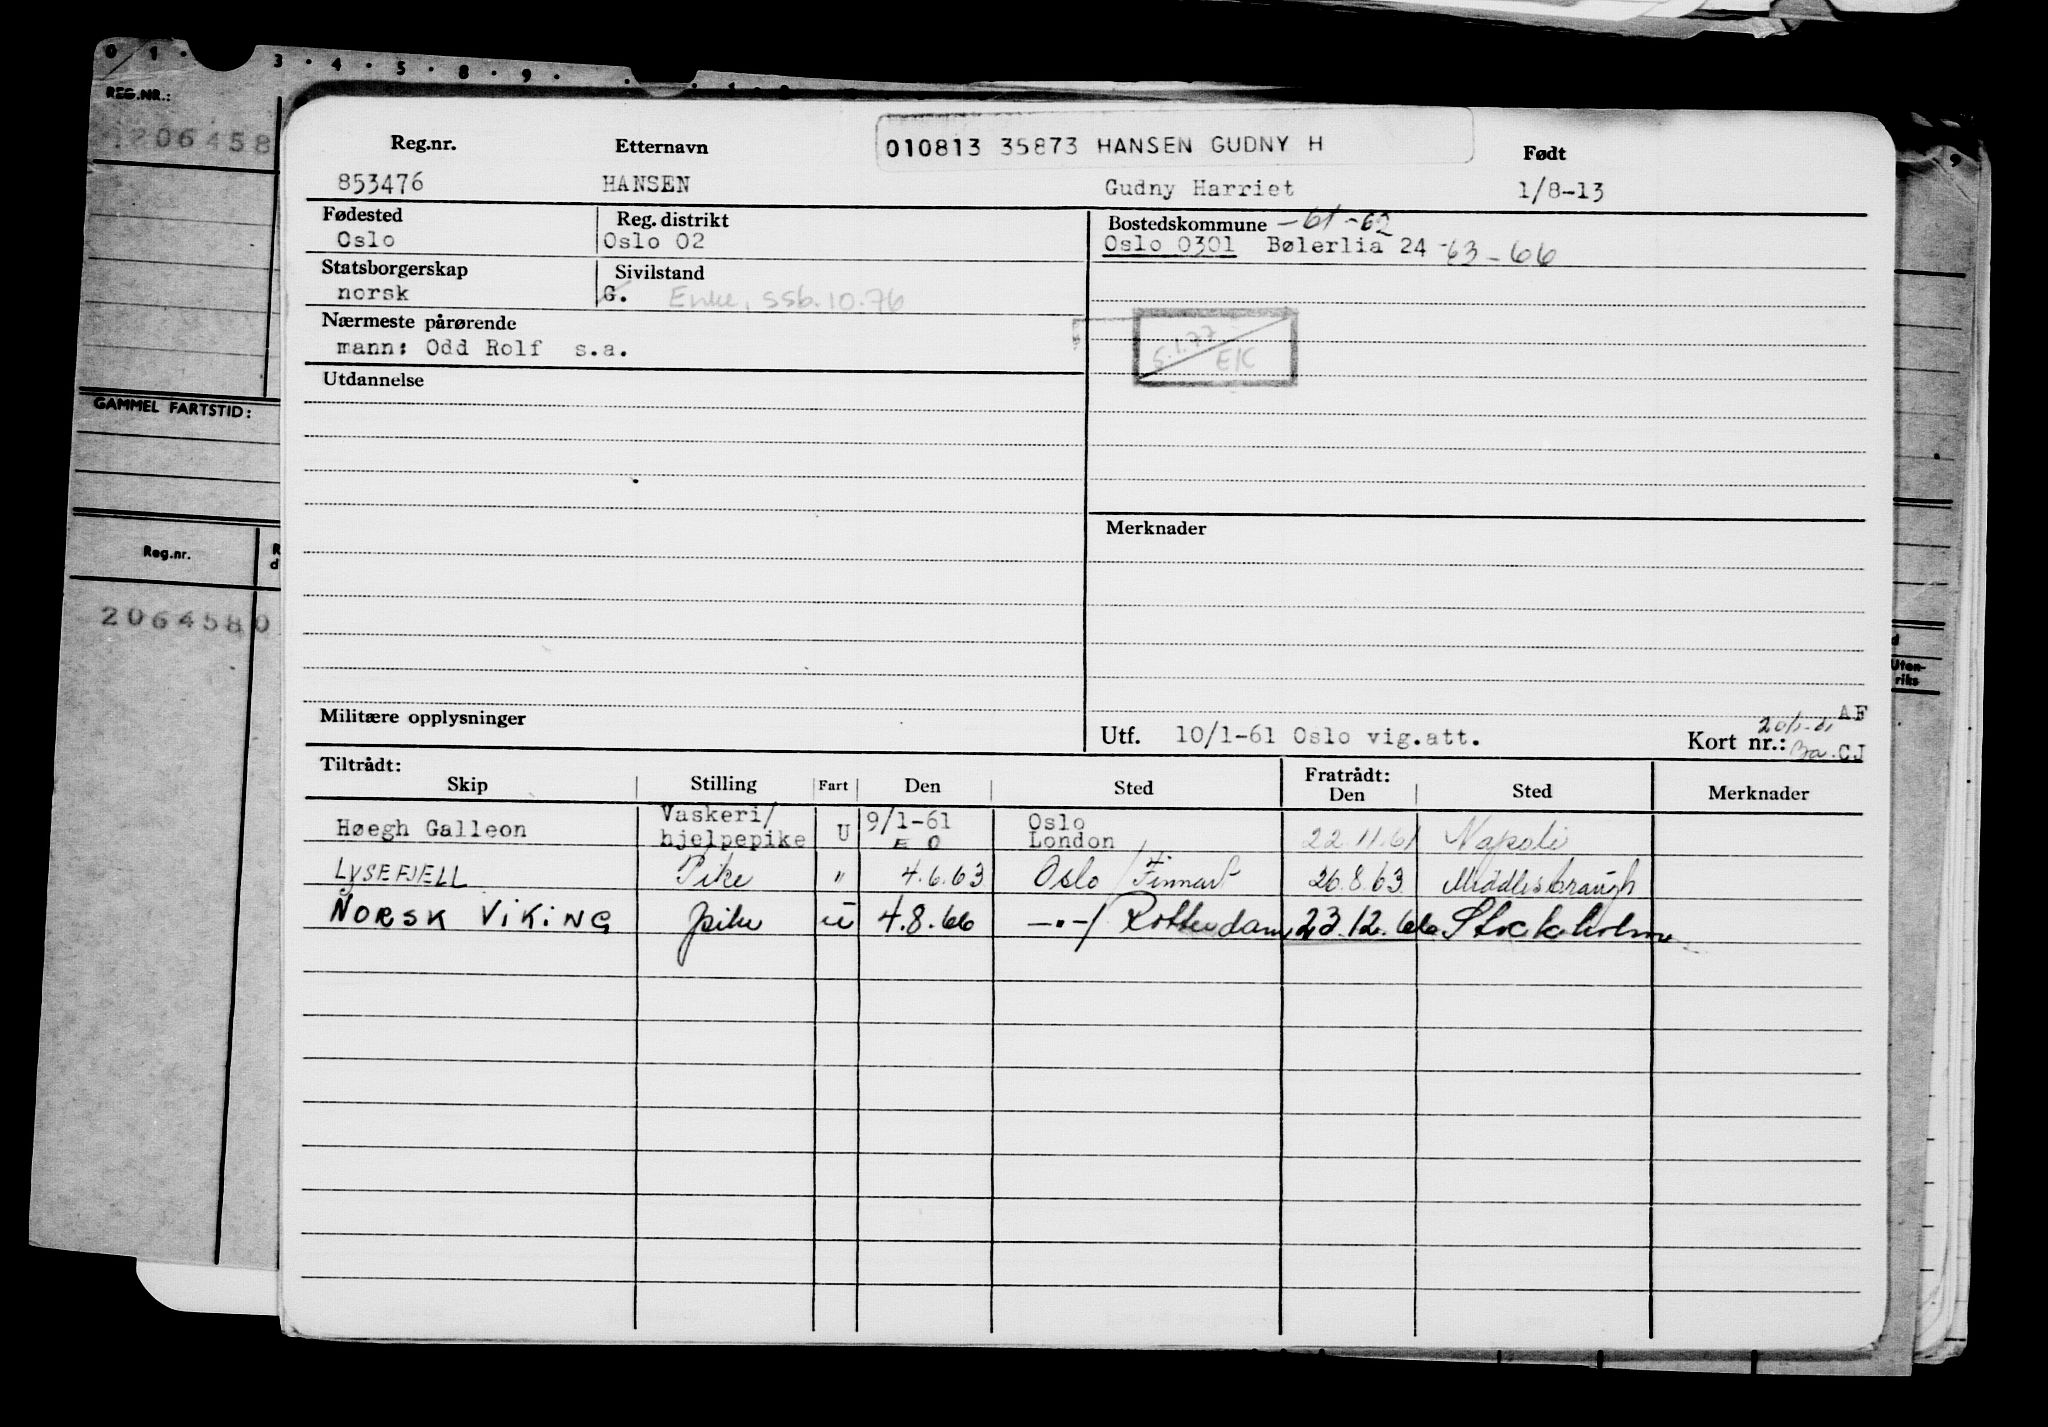 0 1 · 3 · 4 · 5 · 8 · 9 ·
REG.NR.:
1206458
GAMMEL FARTSTID:
Reg.nr.
2064580
010813 35873 HANSEN GUDNY H
Reg.nr. Etternavn Født
853476 HANSEN Gudny Harriet 1/8-13
Fødested Reg. distrikt Bostedskommune -61-62
Oslo Oslo 02 Oslo 0301 Bølerlia 24 -63-66
Statsborgerskap Sivilstand
norsk G. Enke, ssb.10.76
Nærmeste pårørende
mann: Odd Rolf s.a.
5.1.77
EK
Utdannelse
Merknader
Militære opplysninger
AF
Utf. 10/1-61 Oslo vig.att. Kort nr.: CJ
Tiltrådt: Fratrådt:
Skip Stilling Fart Den Sted Den Sted Merknader
Høegh Galleon Vaskeri/ hjelpepike U 9/1-61 E O Oslo London 22.11.61 Napoli
LYSEFJELL Pike " 4.6.63 Oslo / Finnart 26.8.63 Middlesbraugh
NORSK VIKING pike u 4.8.66 -"-/ Rotterdam 23.12.66 Stockholm
d
Uten-
riks